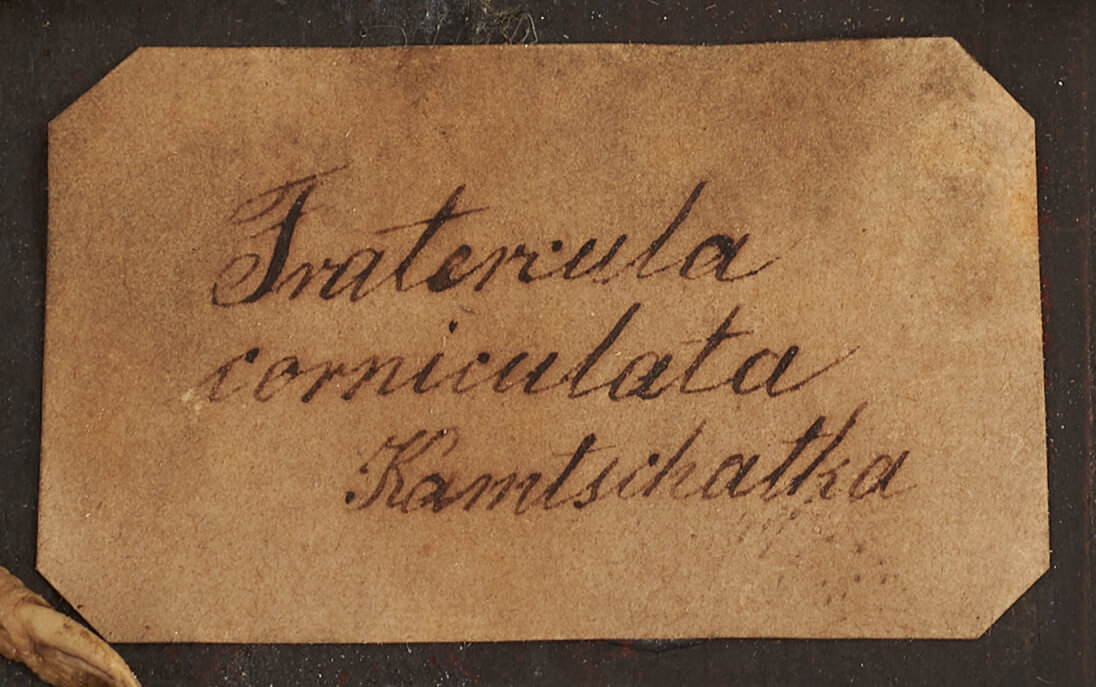 Fratercula
corniculata
Kamtschatka